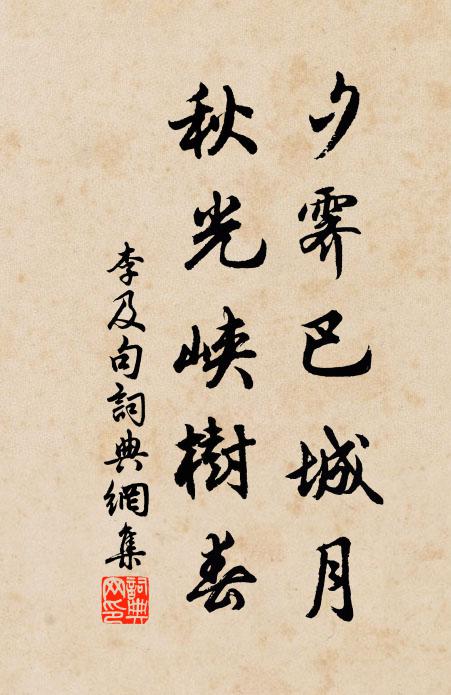 夕霽巴城月
秋光峽樹春
李及句詞典網集
詞典网印